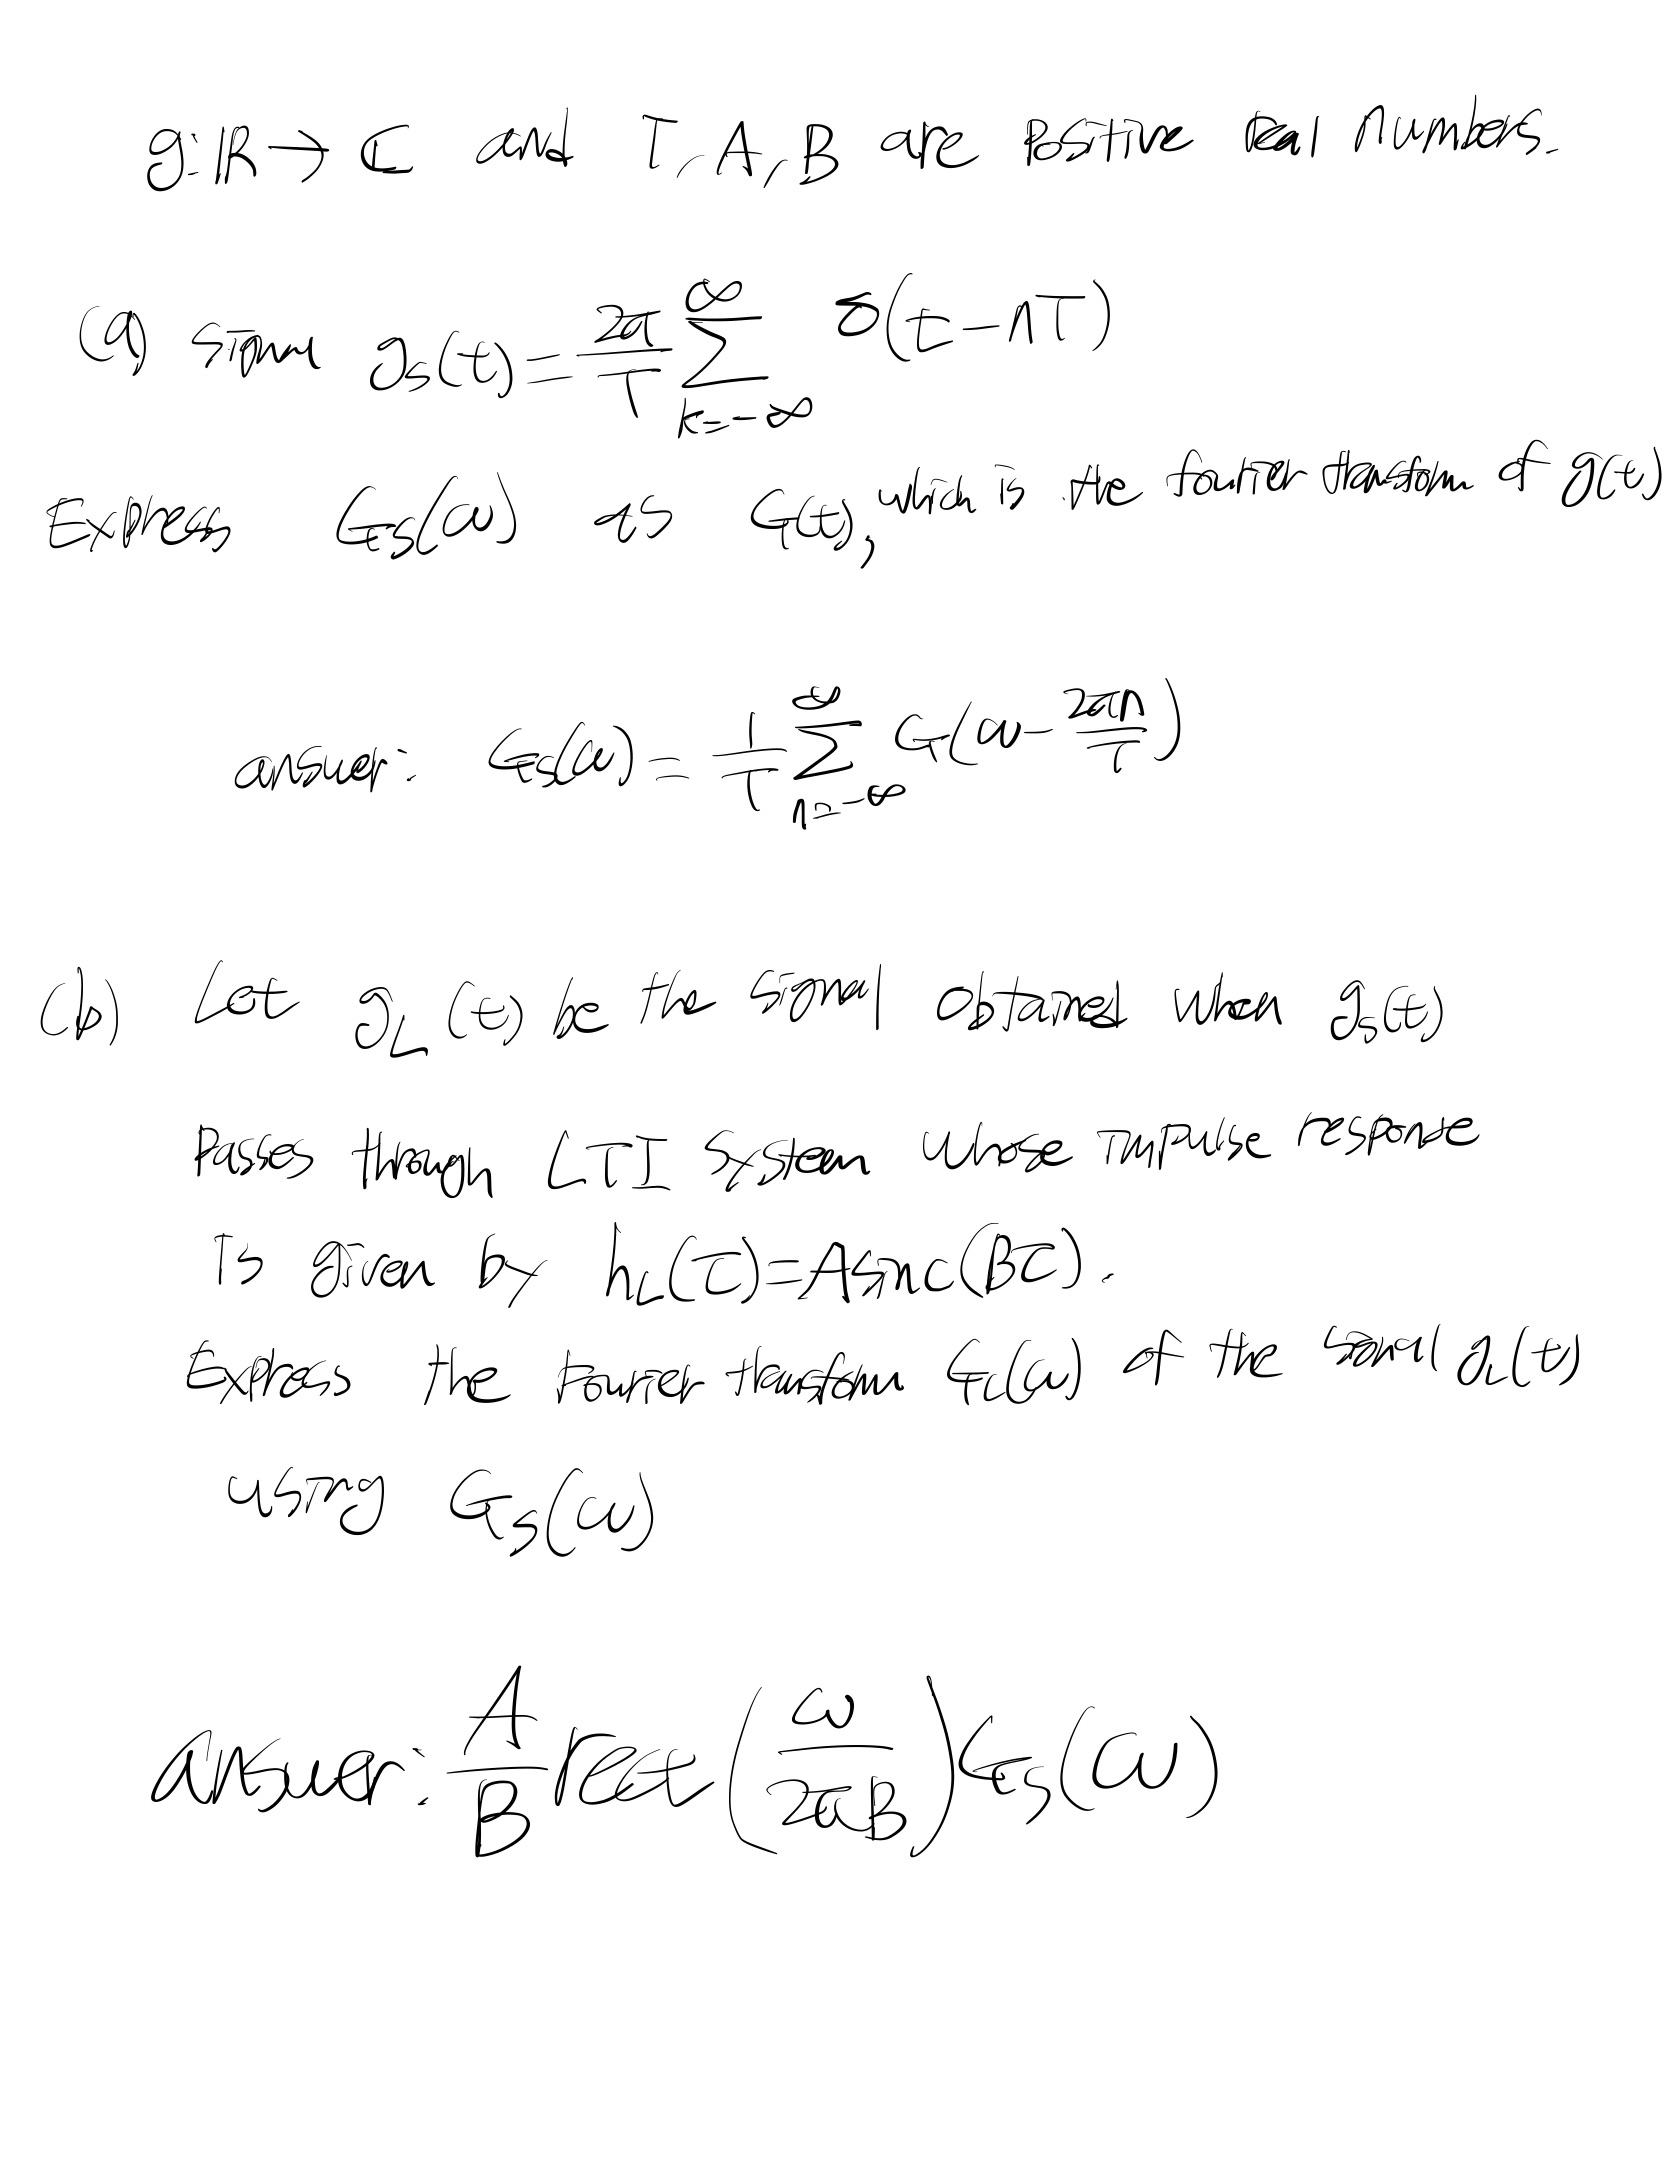 g:ℝ→ℂ and T, A, B are positive real numbers.
(a) signal g_s(t) = \frac{2π}{T} \sum_{k=-∞}^{∞} δ(t-nT)
Express G_s(ω) as G(t), which is the fourier transform of g(t)
answer: G_s(ω) = \frac{1}{T} \sum_{n=-∞}^{∞} G(ω - \frac{2πn}{T})
(b) Let g_L(t) be the signal obtained when g_s(t)
Passes through LTI system whose impulse response
is given by h_L(τ)=Asinc(Bτ).
Express the Fourier transform G_L(ω) of the signal g_L(t)
using G_s(ω)
answer: \frac{A}{B} rect(\frac{ω}{2πB}) G_s(ω)